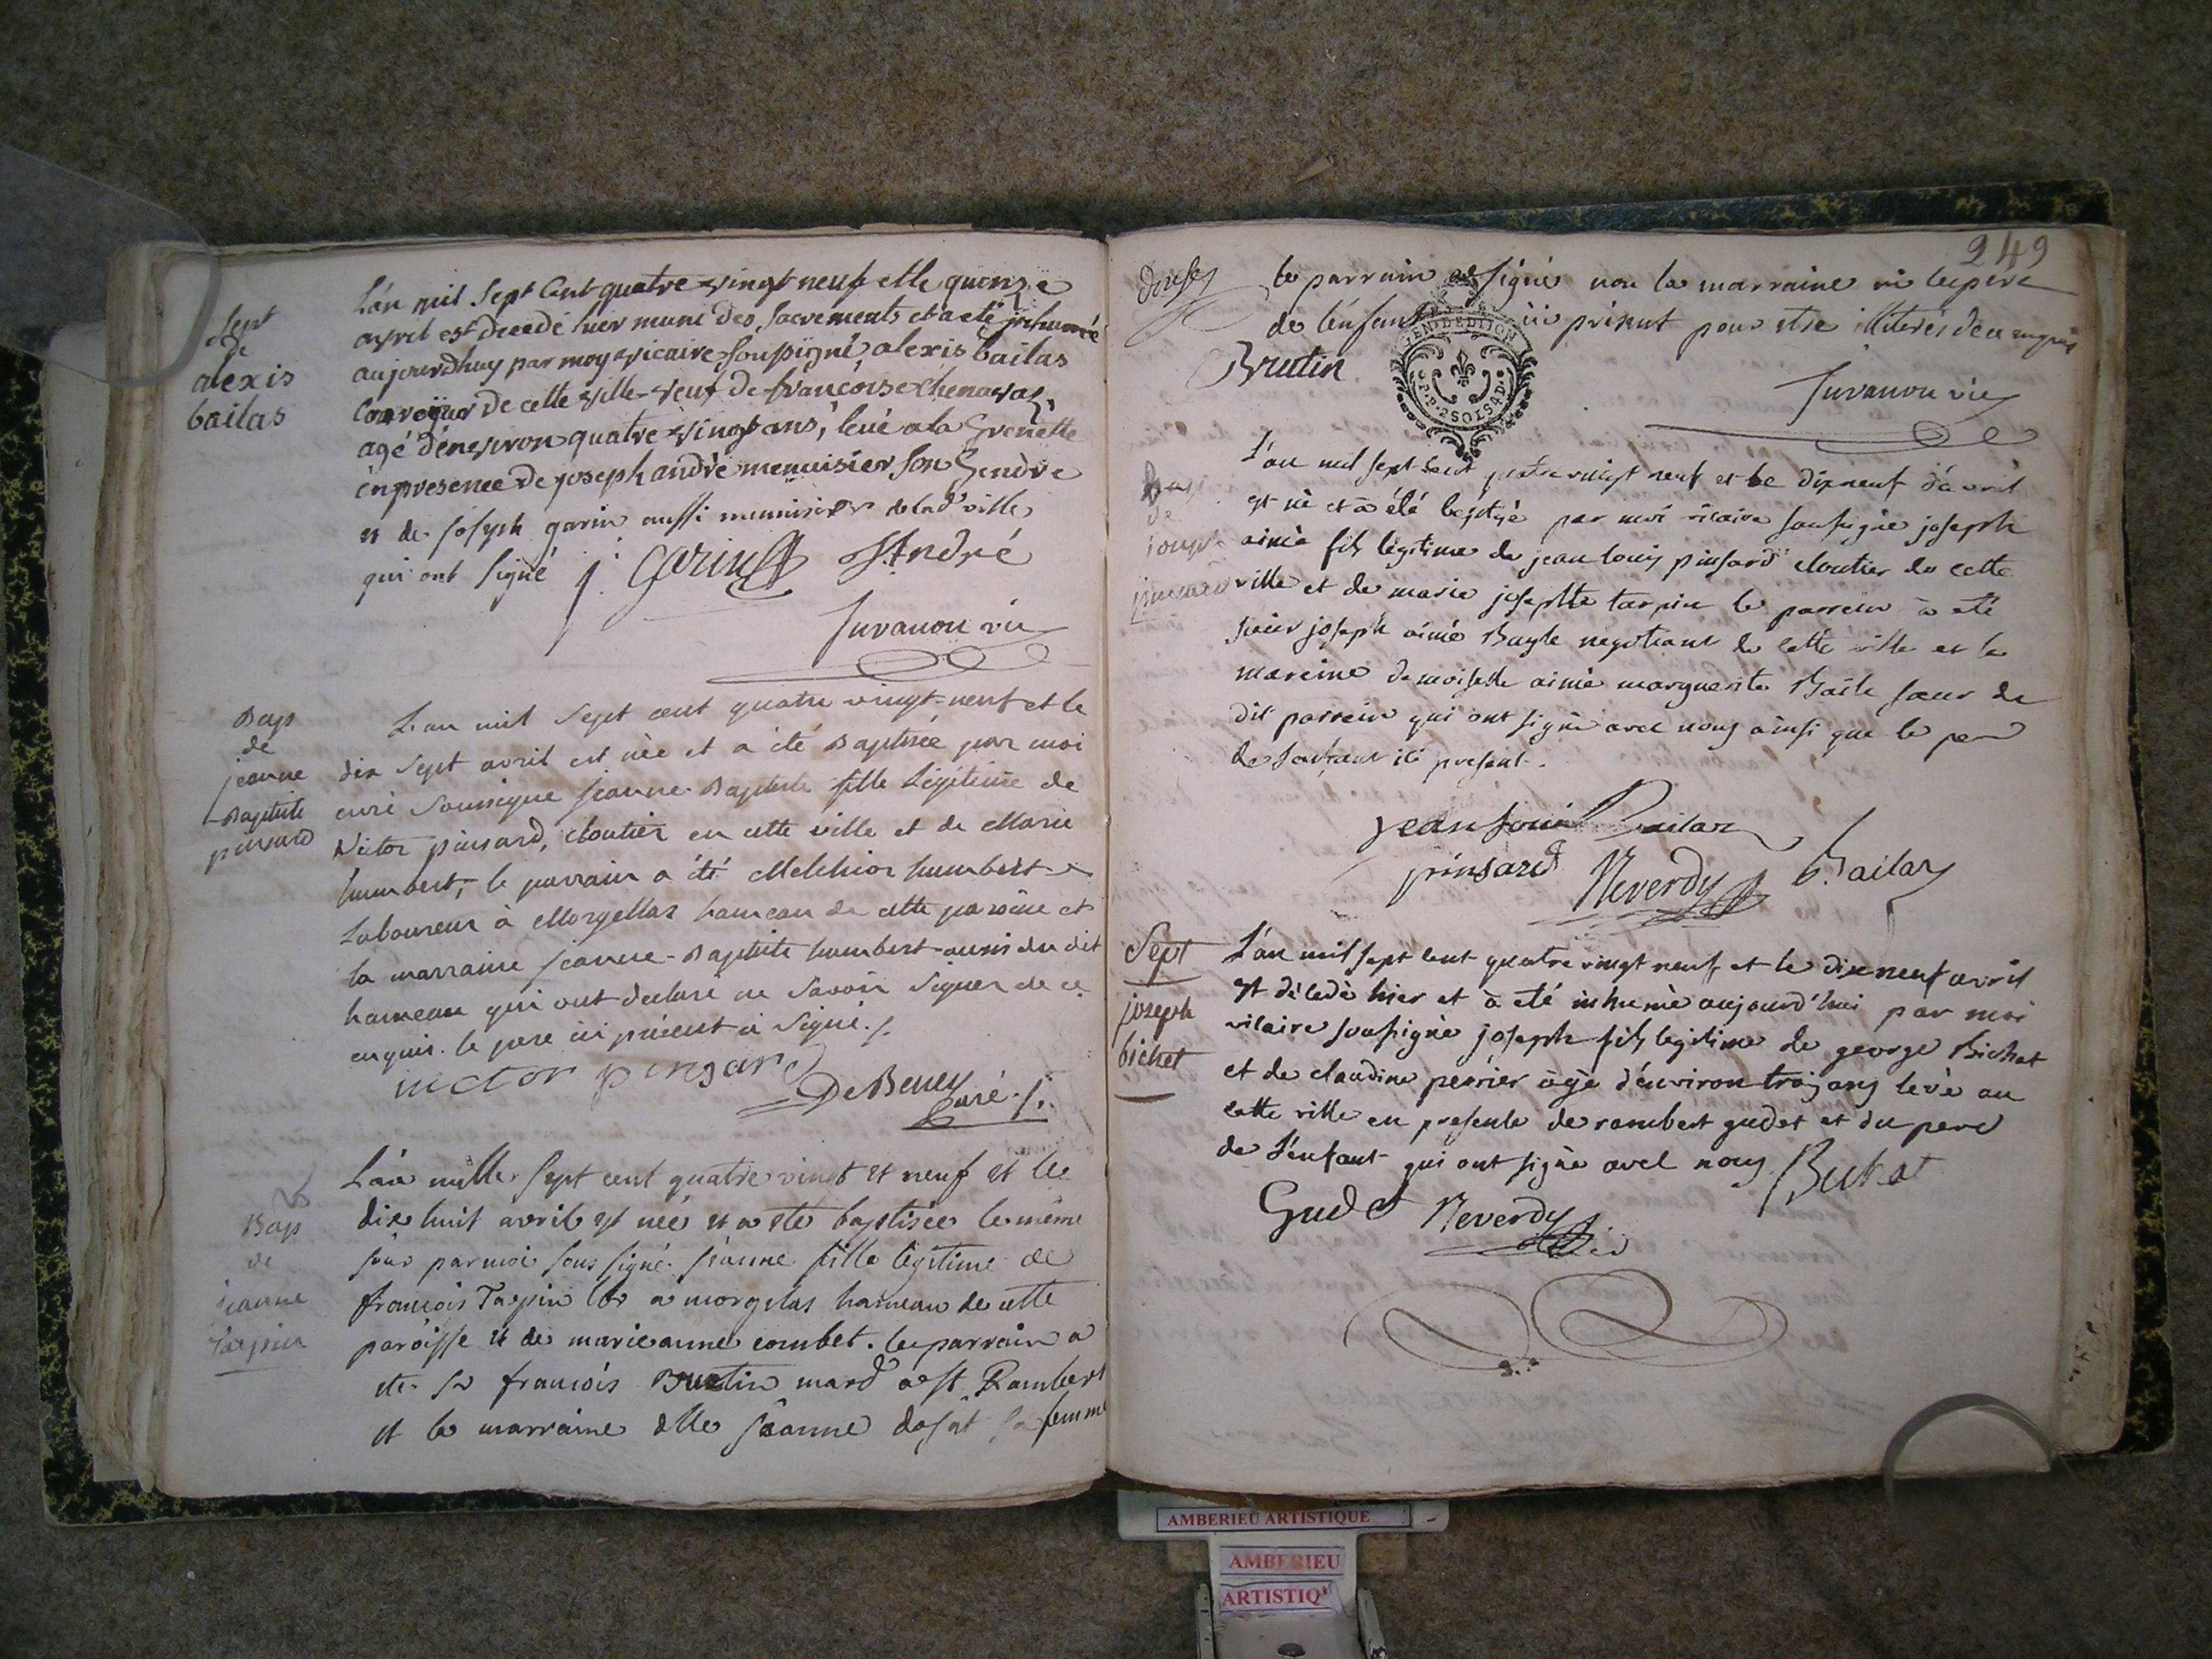 Sept
de
alexis
bailas
L'an mil sept Cent quatre vingt neuf et le quinze
avril est decedé hier muni des sacrements et a eté inhumé
aujourdhuy par moy vicaire soussigné alexis bailas
conroyeur de cette ville veuf de françoise chenavas,
agé d'environ quatre vingt ans, levé a la Grenette
en presence de joseph andrè menuisier son Gendre
et de joseph garin aussi menuisier de lad ville
qui ont signé j. Garin J. André
Juvanon vic
Bap
de
jeanne
Baptiste
pinsard
L'an mil sept cent quatre vingt-neuf et le
dix sept avril est née et a été Baptisée par moi
curé soussigné jeanne-Baptiste fille légitime de
Victor pinsard, cloutier en cette ville et de Marie
humbert, le parrain a été Melchior humbert
Laboureur à Morgellas hameau de cette paroisse et
la marraine jeanne-Baptiste humbert aussi du dit
hameau qui ont declaré ne savoir signer de ce
enquis. le pere ici présent a signé ./.
victor pinsard
De Beney
Curé ./.
Bap
de
jeanne
Tarpin
L'an mille sept cent quatre vingt et neuf et le
dix huit avril est née et a ete baptisée le même
jour par moi sous signé jeanne fille légitime de
françois Tarpin lbr a morgelas hameau de cette
paroisse et de marieanne combet. le parrain a
ete sr françois Brutin mard a St Rambert
et la marraine dlle jeanne dosat sa femme
949
le parrain a signé non la marraine ni le père
de l'enfant ici présent pour etre illiterés de ce enquis
Brutin
GEN. DE DIJON
P.P. 2SOLS4D.
Juvanon vic
Bap
de
joseph
pinsard
L'an mil sept Cent quatre vingt neuf et le dixneuf d'avril
est né et à été baptisé par moi vicaire soussigné joseph
aimé fils légitime de jean louis pinsard cloutier de cette
ville et de marie josephte tarpin le parrein a eté
sieur joseph aimé Bayle negotiant de cette ville et la
mareine demoiselle aimé marguerite Baile sœur du
dit parrein qui ont signé avec nous ainsi que le pere
de l'enfant ici present.
jean louis Bailas
pinsard Reverdy B. Bailas
Sept
joseph
bichet
L'an mil sept cent quatre vingt neuf et le dixneuf avril
est décedé hier et à eté inhumé aujourd'hui par moi
vicaire soussigné joseph fils legitime de george Bichat
et de claudine perrier âgé d'environ trois ans levé au
cette ville en presente de rambert gudet et du pere
de L'enfant qui ont signé avec nous Bichat
Gudet Reverdy vic
AMBERIEU ARTISTIQUE
AMBERIEU
ARTISTIQ